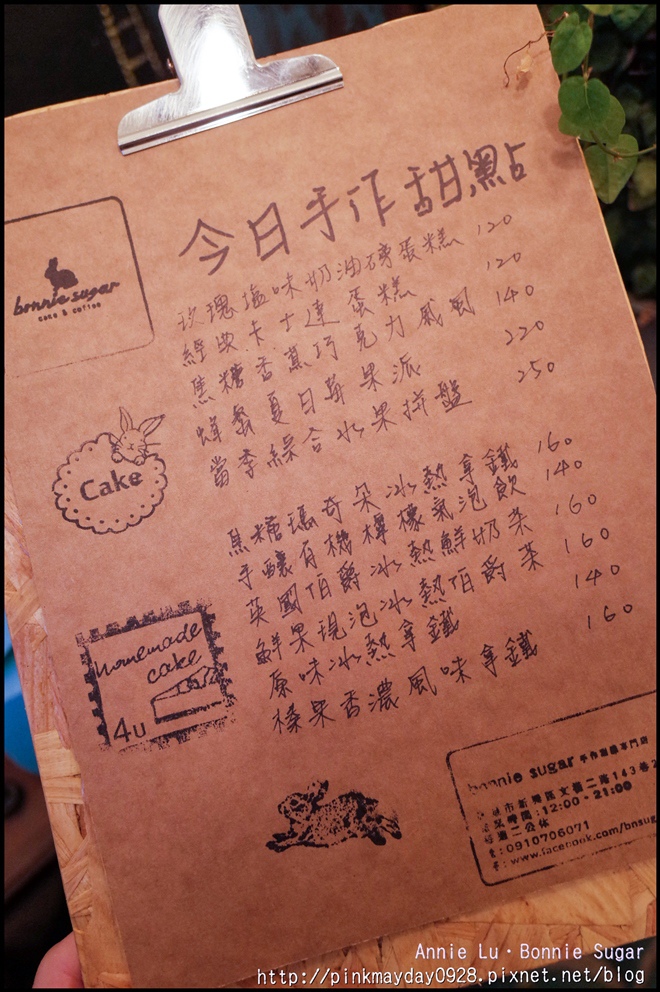 今日手作甜點
bonnie sugar
cake & coffee
玫瑰塩味奶油磅蛋糕 120
經典卡士達蛋糕 120
焦糖香蕉巧克力戚風 140
蜂蜜夏日莓果派 220
當季綜合水果拼盤 250
Cake
焦糖瑪奇朵冰熱拿鐵 160
手釀有機檸檬氣泡飲 140
英國伯爵冰熱鮮奶茶 160
鮮果現泡冰熱伯爵茶 160
原味冰熱拿鐵 140
榛果香濃風味拿鐵 160
homemade
cake
4u
bonnie sugar 手作甜點專門店
市新興區文橫二路143巷2
時間:12:00-21:00
週二公休
:0910706071
:www.facebook.com/bnsug
Annie Lu·Bonnie Sugar
http://pinkmayday0928.pixnet.net/blog